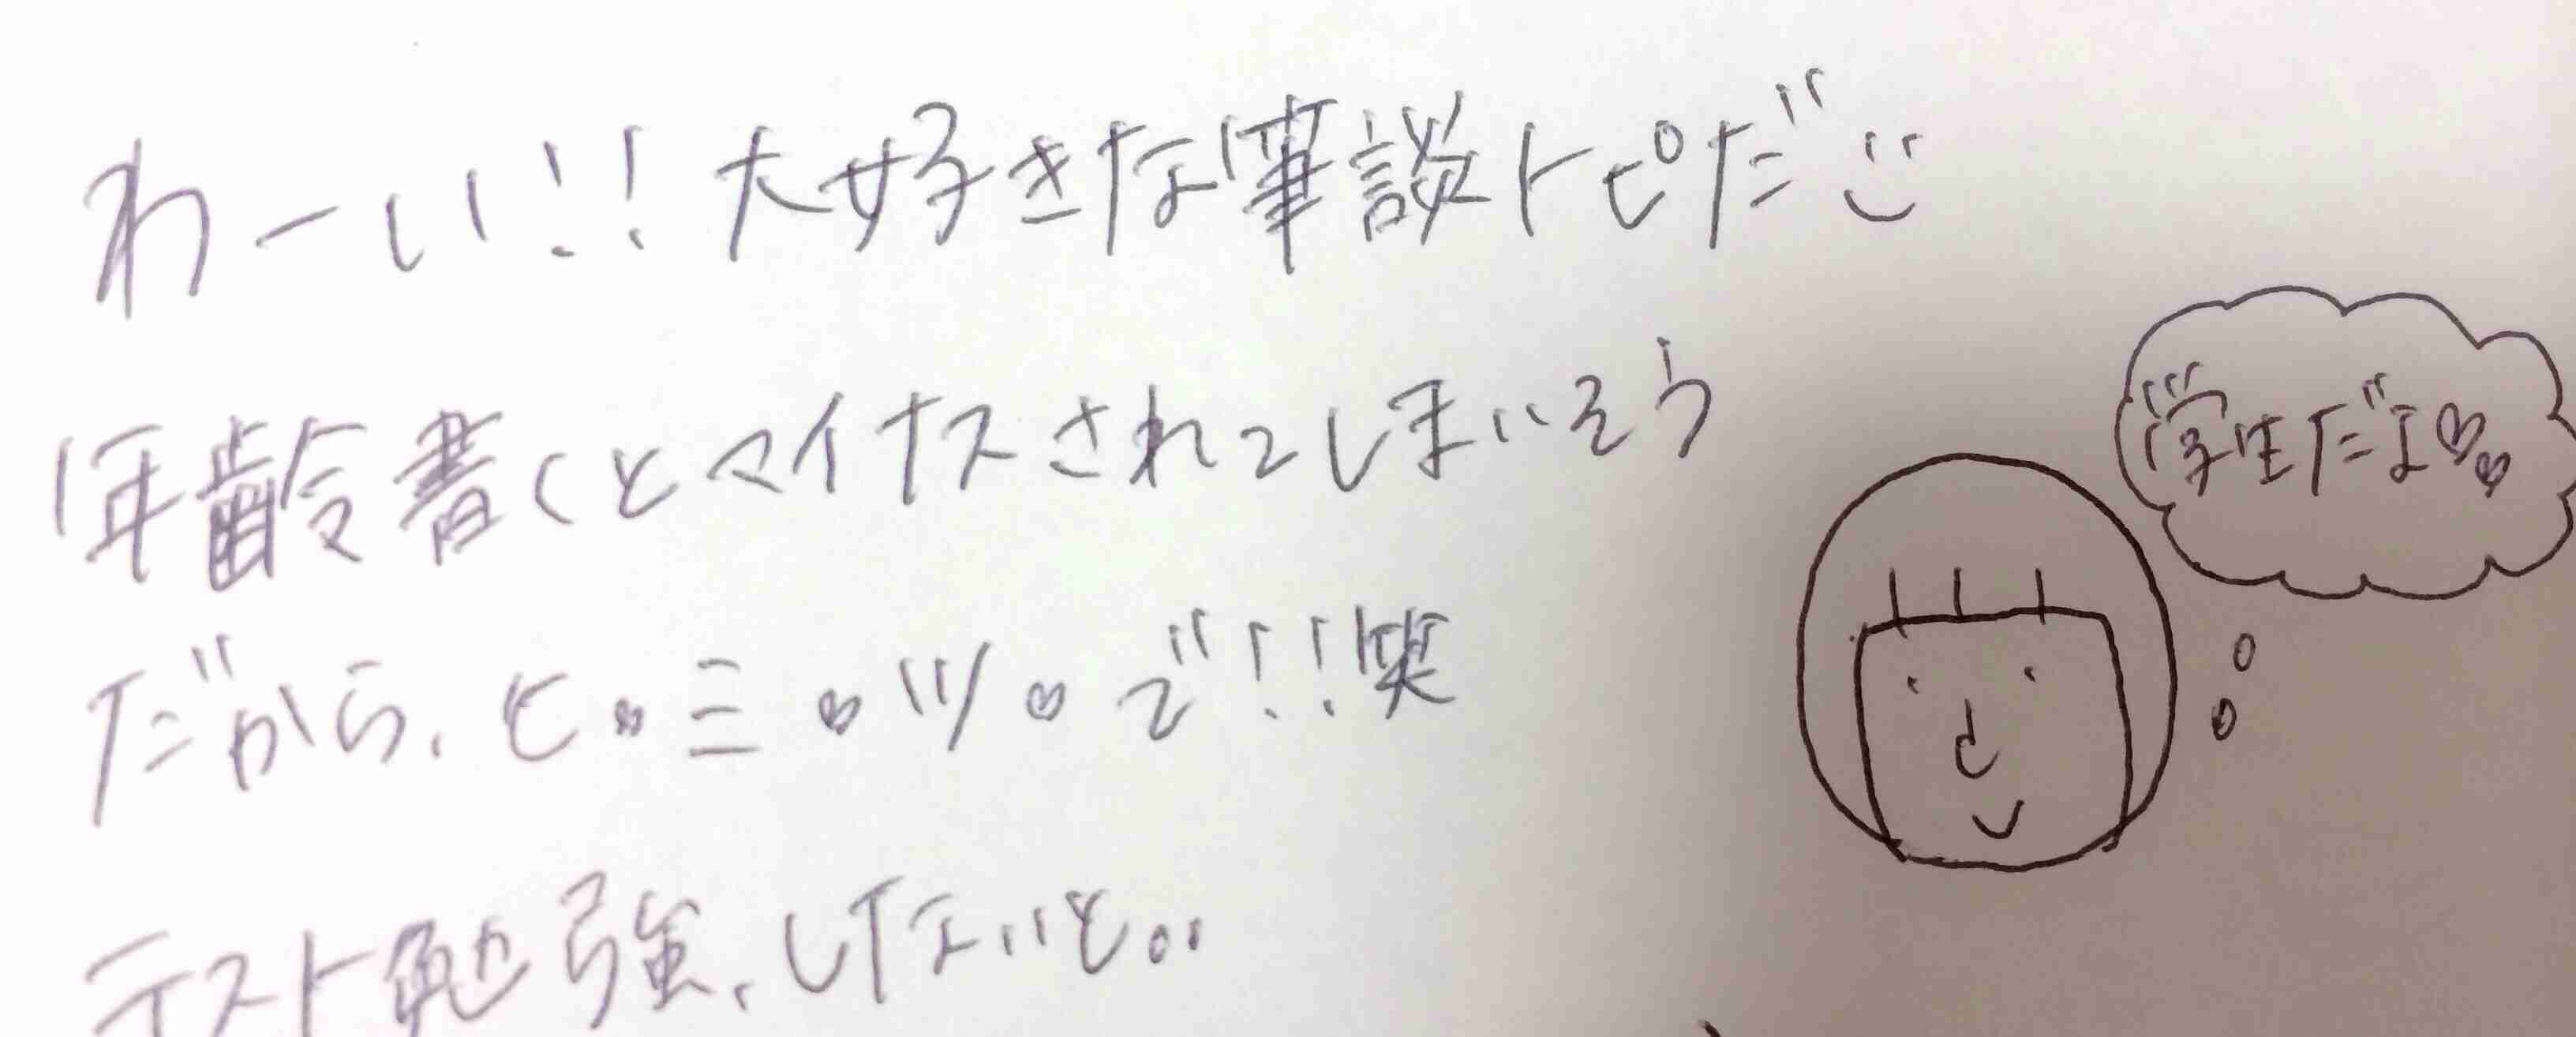 わーい!!大好きな筆談トピだ¨
年齢書くとマイナスされてしまいそう
だから、ヒ♡ミ♡ツ♡で!!笑
テスト勉強、しないと。。
学生だよ♡♡